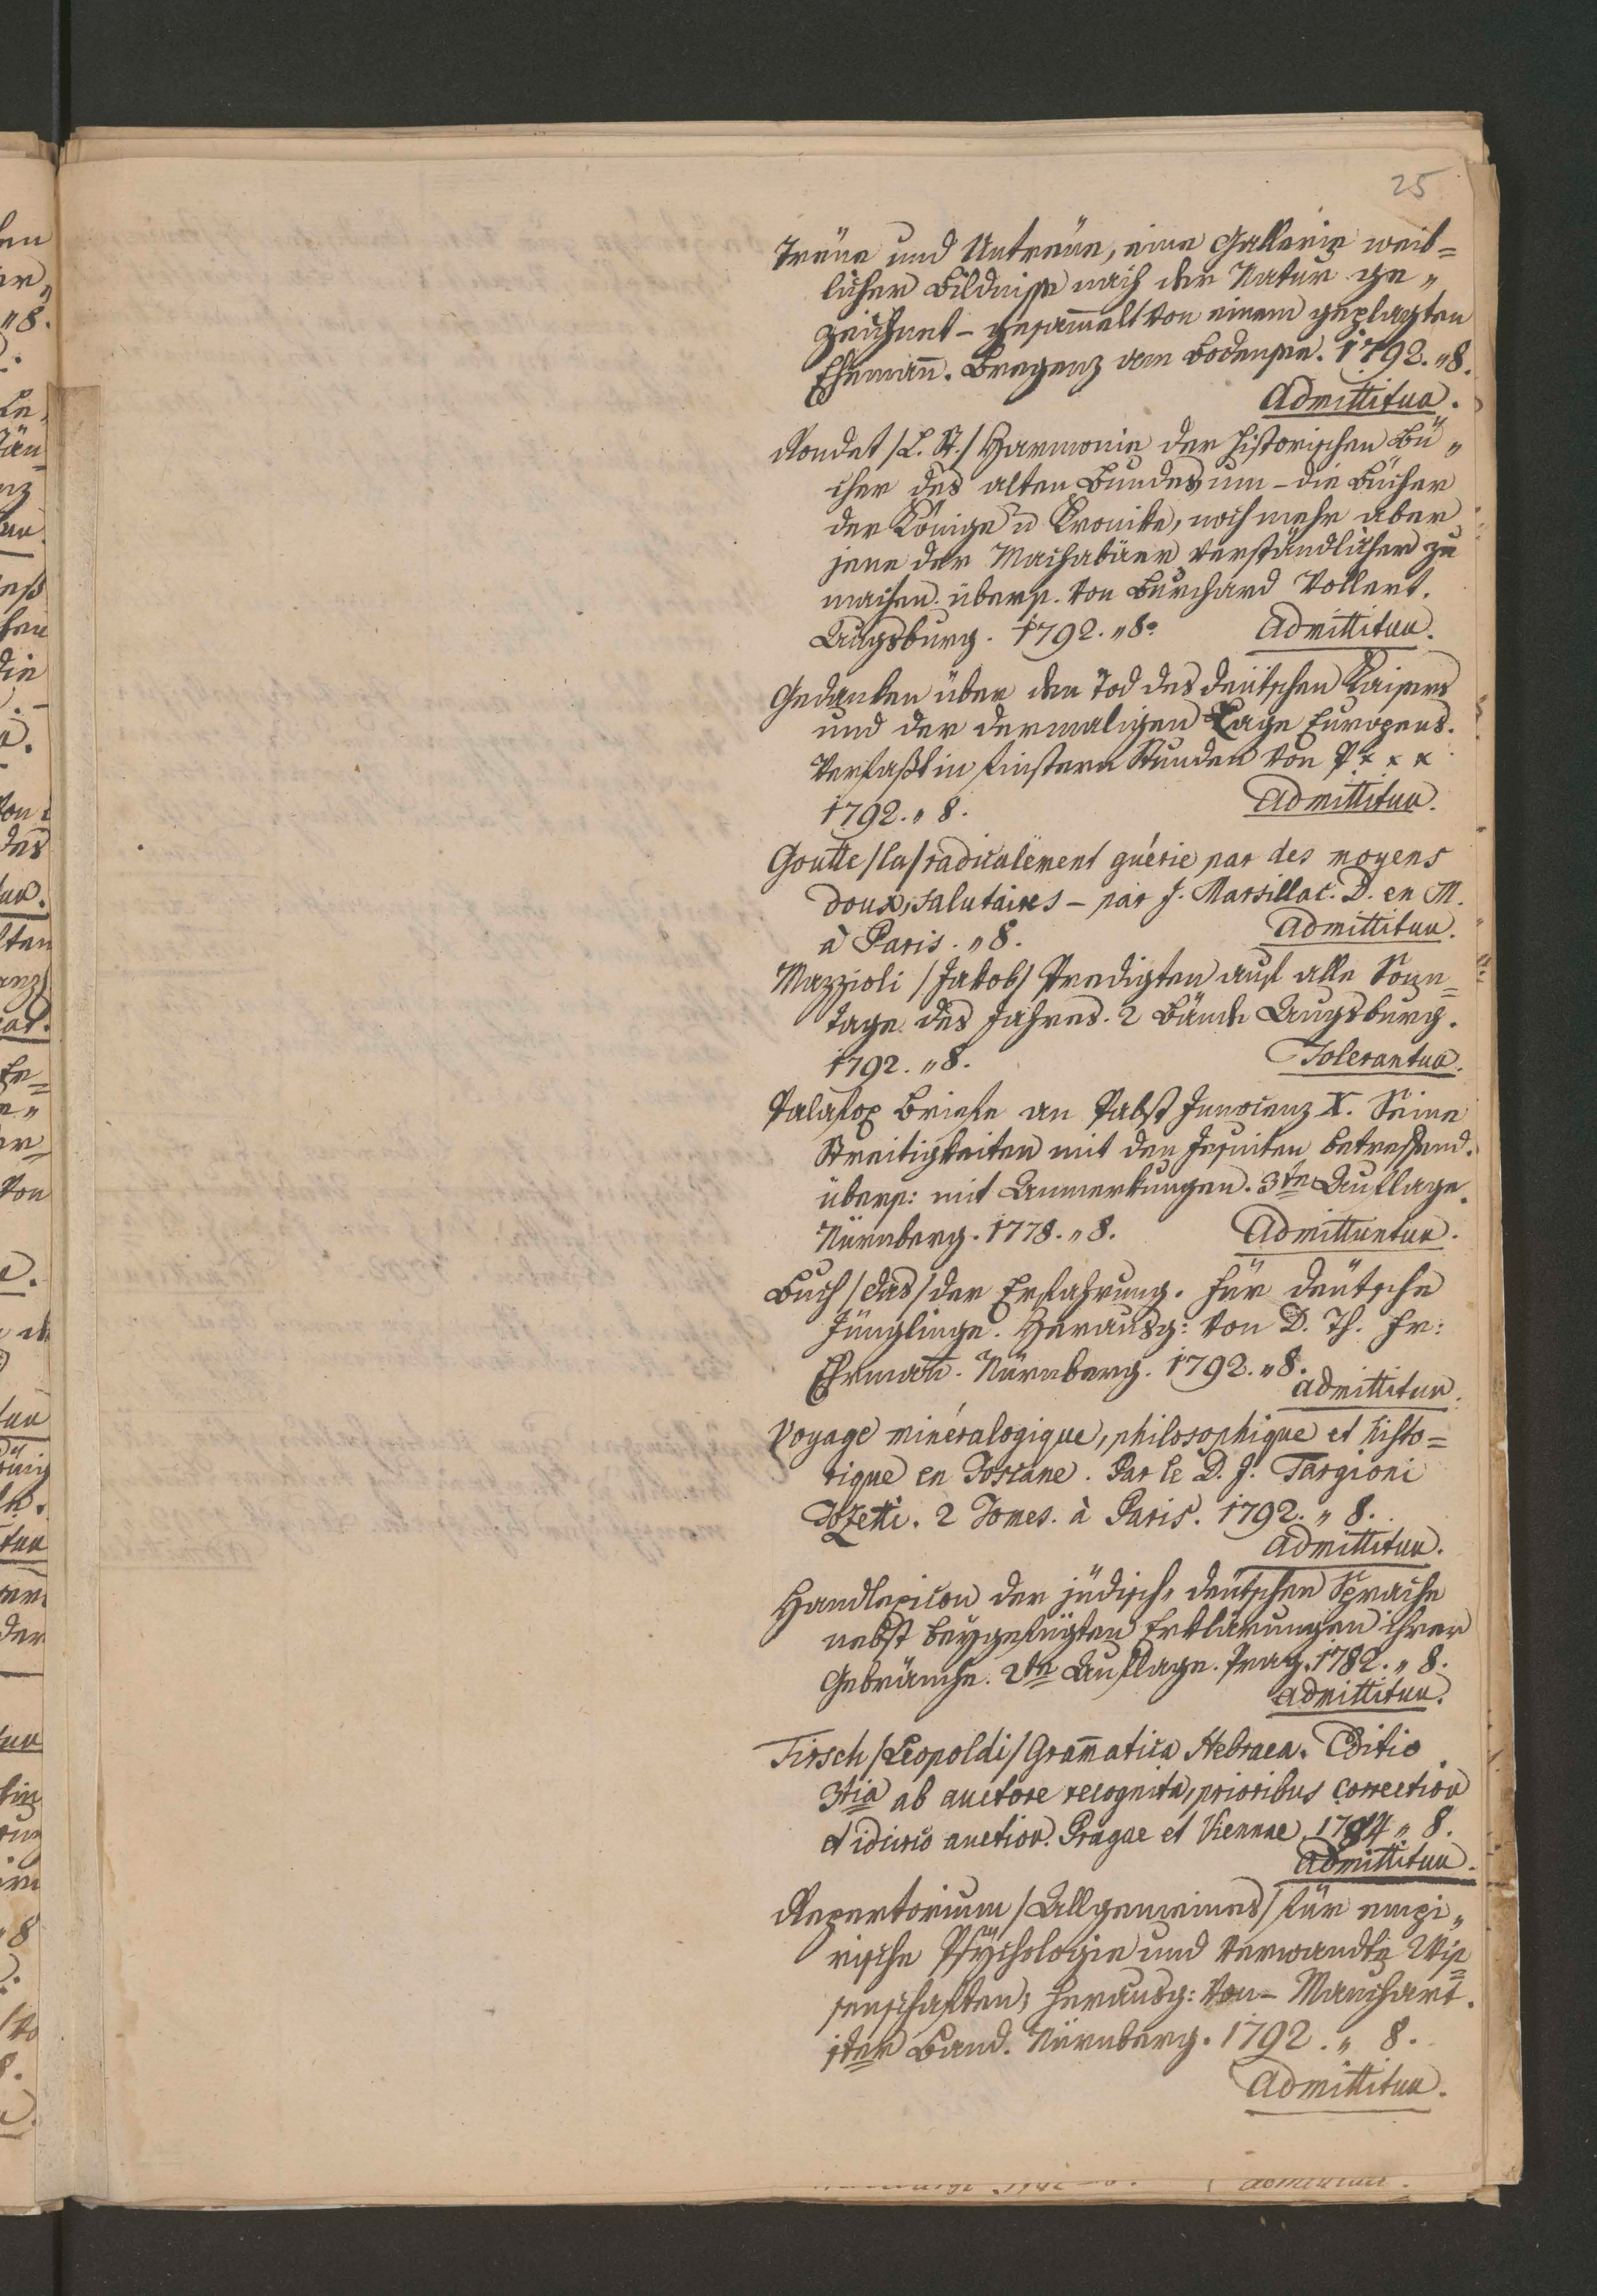 25
Treüe und Untreüe, eine Gallerie weib=
licher Bildnisse nach der Natur ge„
zeichnet – gesam̅elt von einem geplagten
Ehemañ. Bregenz am Bodensee. 1792. „ 8.
Admittitur.
Rondet /L. St./ Harmonie der historischen Bü„
cher des alten Bundes um – die Bücher
der Könige u Kronike, noch mehr aber
jene der Machabäer verständlicher zu
machen. übers. von Burchard Vollert.
Augsburg. 1792. „ 8o
Admittitur.
Gedanken über den Tod des deütschen Kaisers
und der dermaligen Lage Europens.
Verfaßt in finstern Stunden von P x x x
1792. „ 8.
Admittitur.
Goutte /la/ radicalement guérie par des moyens
doux, salutaires – par J. Marsillac. D. en M.
à Paris. „ 8.
Admittitur.
Mazzioli /Jakob/ Predigten auf alle Sonn=
tage des Jahres. 2 Bände Augsburg.
1792. „ 8.
Tolerantur.
Palafox Briefe an Pabst Innocenz X. Seine
Streitigkeiten mit den Jesuiten betreffend.
übers: mit Anmerkungen. 3te Auflage.
Nürnberg. 1778. „ 8.
Admittuntur.
Buch /das/ der Erfahrung. Für deütsche
Jünglinge. Herausg: von D. Th. Fr:
Ehrmañ. Nürnberg. 1792. „ 8.
Admittitur.
Voyage minéralogique, philosophique et histo=
rique en Toscane. Par le D. J. Targioni
Tozetti. 2 Tomes. à Paris. 1792. „ 8.
Admittitur.
Handlexicon der jüdisch„ deütschen Sprache
nebst beygefügten Erklärungen ihrer
Gebräuche. 2te Auflage. Prag. 1782. „ 8.
Admittitur.
Tirsch /Leopoldi/ Gram̅atica Hebraea. Editio
3tia ab auctore recognita, prioribus correctior
et auctior. Pragae et Viennae. 1784 „ 8.
Admittitur.
Repertorium /Allgemeines/ für empi„
rische Psÿchologie und verwandte Wis=
senschaften; herausg: von – Mauchart.
1ter Band. Nürnberg. 1792. „ 8.
Admittitur.